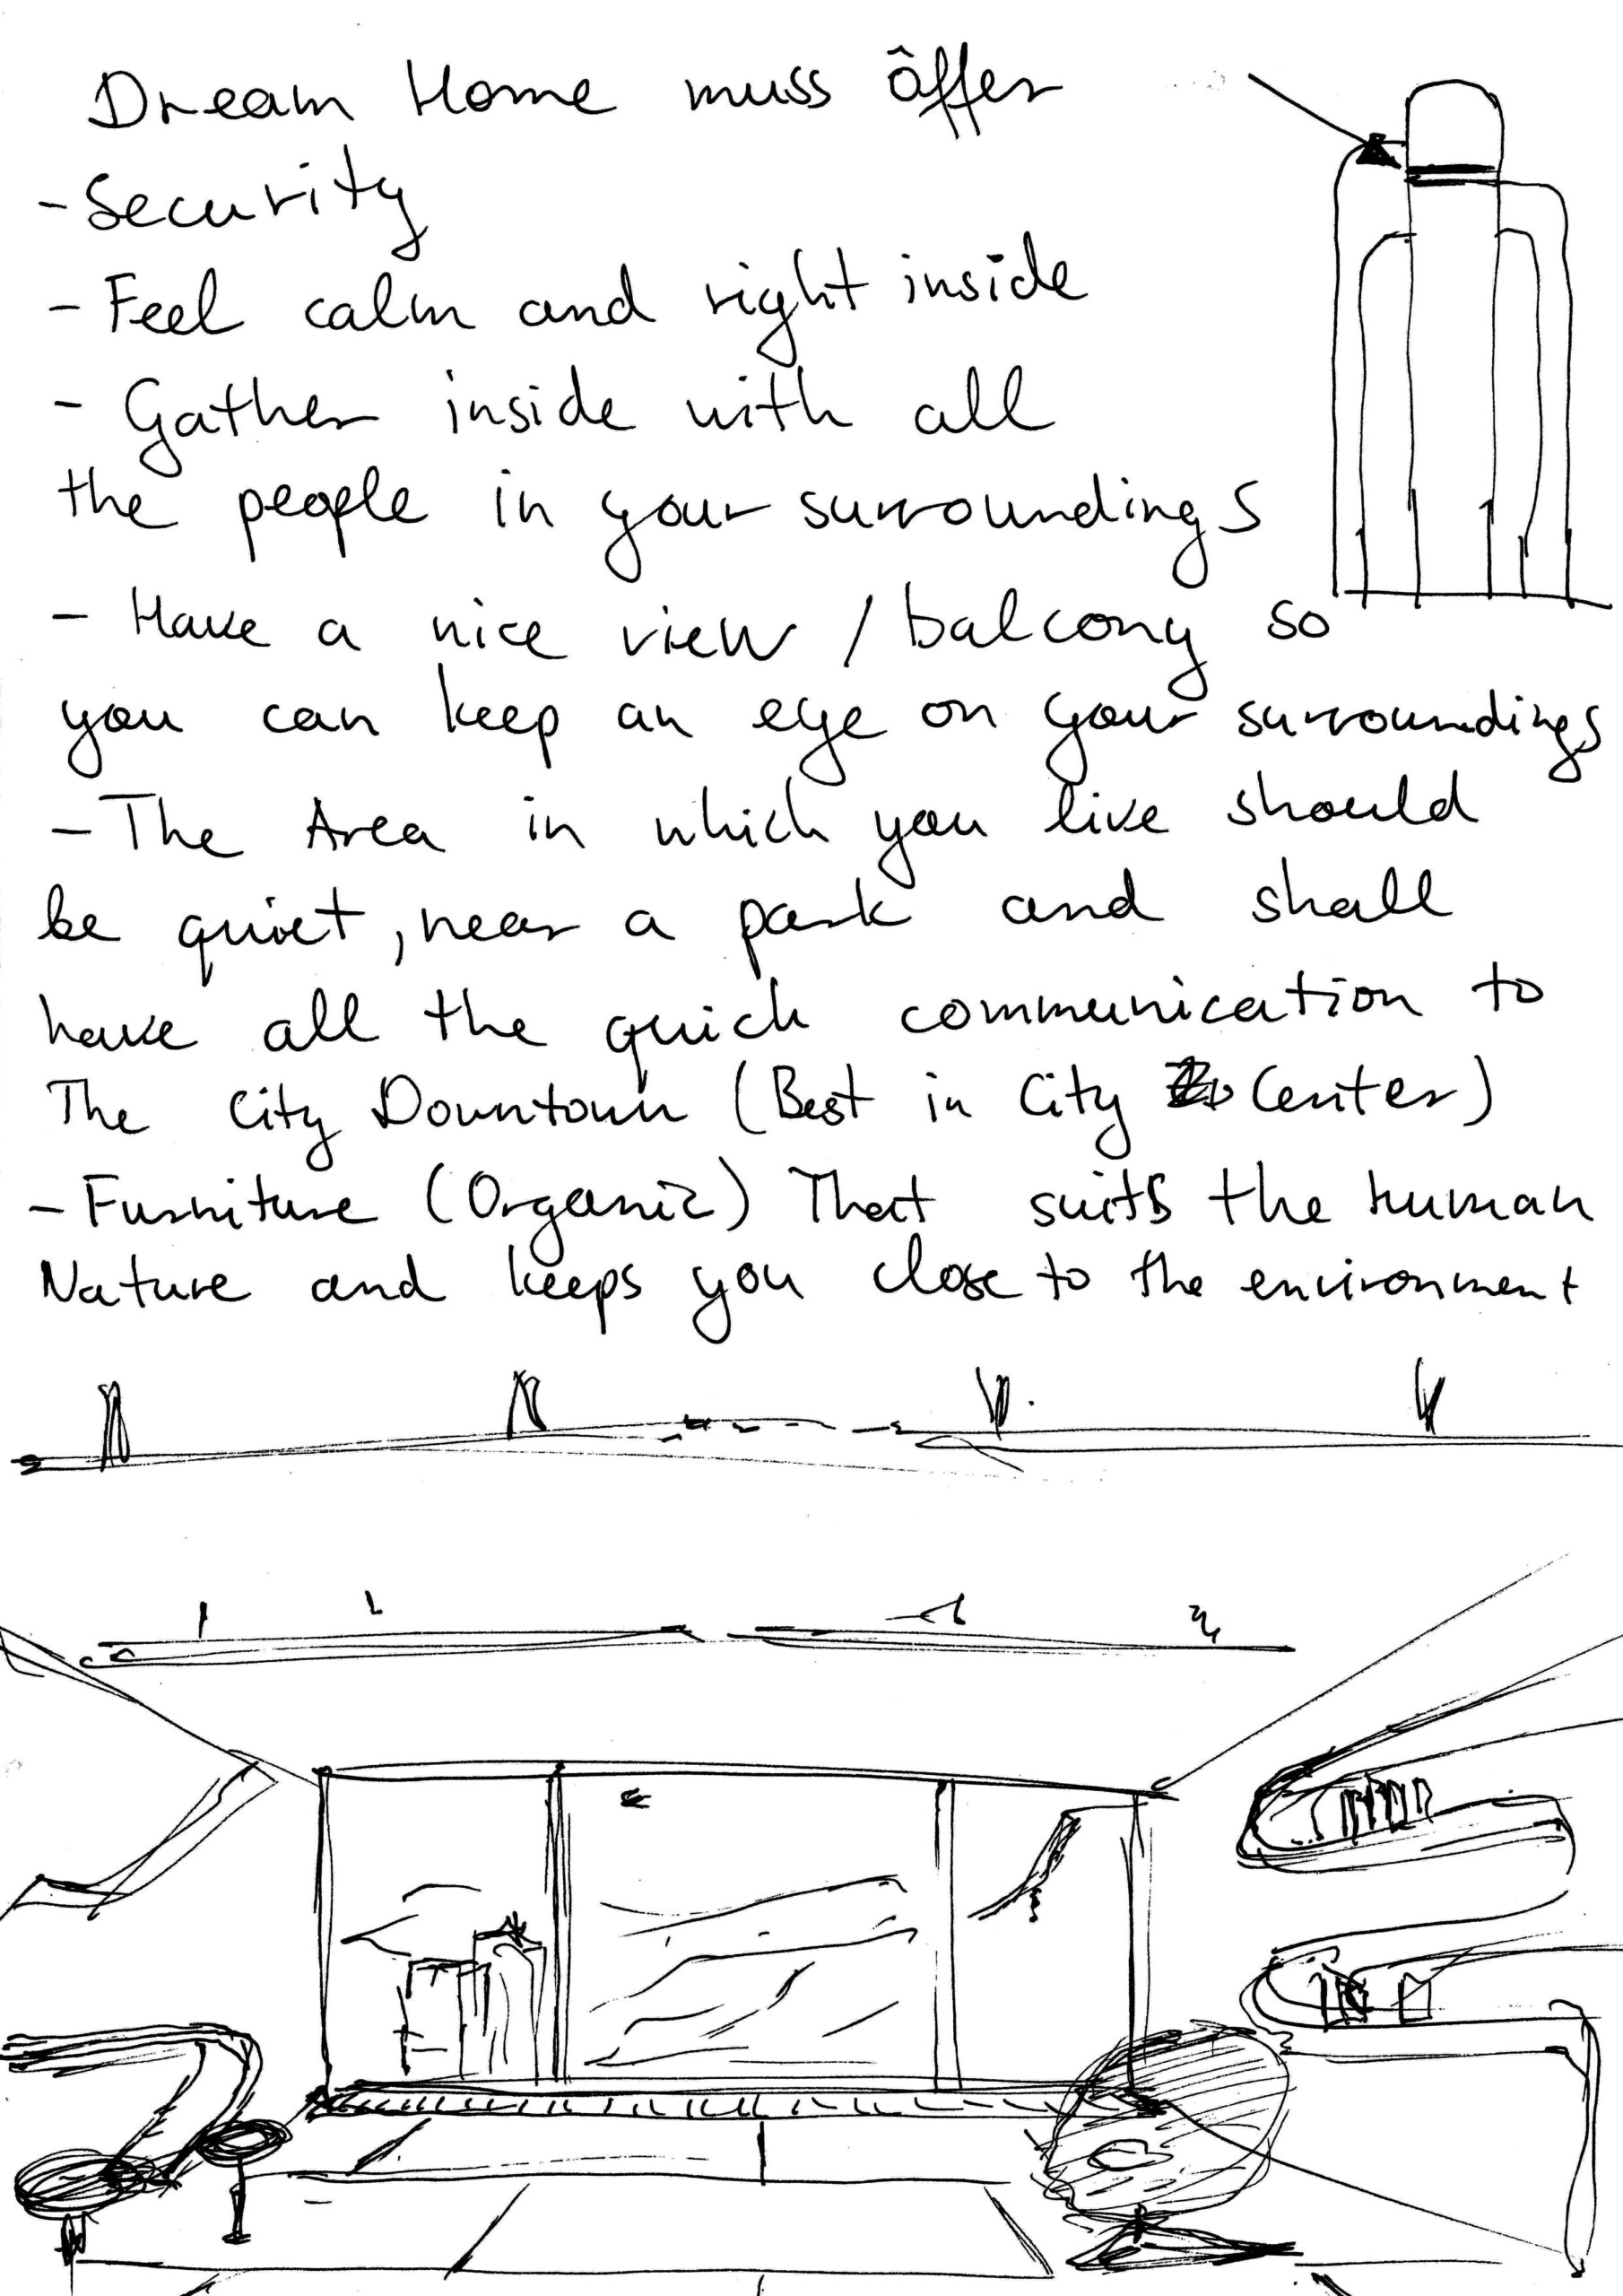 Dream Home muss ôffer
- Security
- Feel calm and right inside
- Gather inside with all
the people in your surroundings
- Have a nice view / balcony so
you can keep an eye on your surroundings
- The Area in which you live should
be quiet, near a park and shall
have all the quick communication to
The City Downtown (Best in City Center)
- Furniture (Organic) That suits the human
Nature and keeps you close to the environment